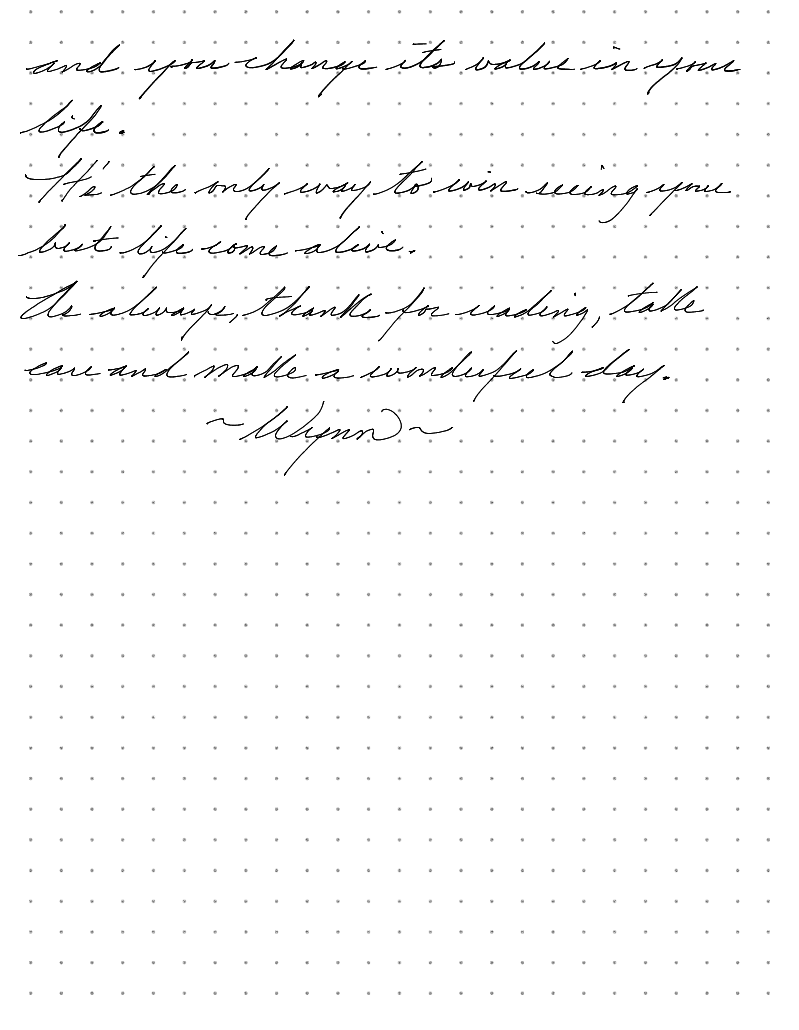 and you change its value in your
life.
It's the only way to win seeing your
best life come alive.
As always, thanks for reading, take
care and make a wonderful day.
~Wynn~